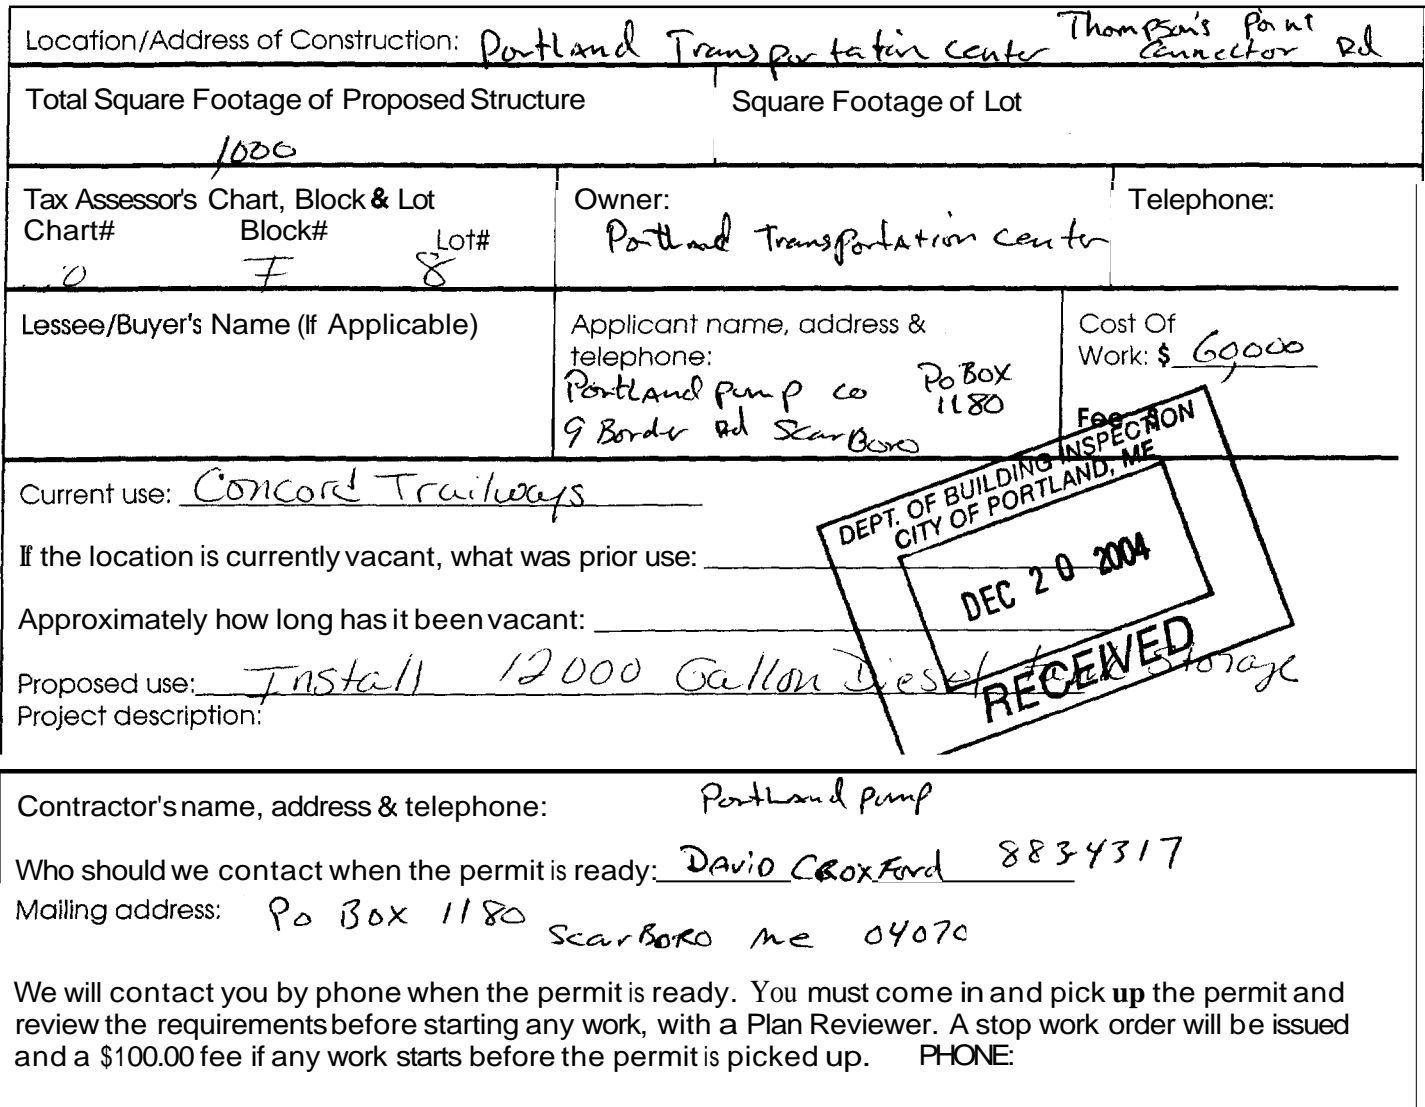 Location/Address of Construction: Portland Transportation Center Thompson's Point Connector Rd
Total Square Footage of Proposed Structure Square Footage of Lot
1000
Tax Assessor's Chart, Block & Lot Owner: Telephone:
Chart# Block# Lot# Portland Transportation Center
0 7 8
Lessee/Buyer's Name (If Applicable) Applicant name, address & Cost Of
telephone: Work: $ 60,000
Portland pump co Po Box 1180
9 Border Rd ScarBoro Fee
DEPT. OF BUILDING INSPECTION
CITY OF PORTLAND, ME
DEC 20 2004
RECEIVED
Current use: Concord Trailways
If the location is currently vacant, what was prior use:
Approximately how long has it been vacant:
Proposed use: Install 12000 Gallon Diesel tank Storage
Project description:
Contractor's name, address & telephone: Portland pump
Who should we contact when the permit is ready: DAViD CROXFord 883-4317
Mailing address: Po Box 1180
ScarBoRo Me 04070
We will contact you by phone when the permit is ready. You must come in and pick up the permit and
review the requirements before starting any work, with a Plan Reviewer. A stop work order will be issued
and a $100.00 fee if any work starts before the permit is picked up. PHONE: